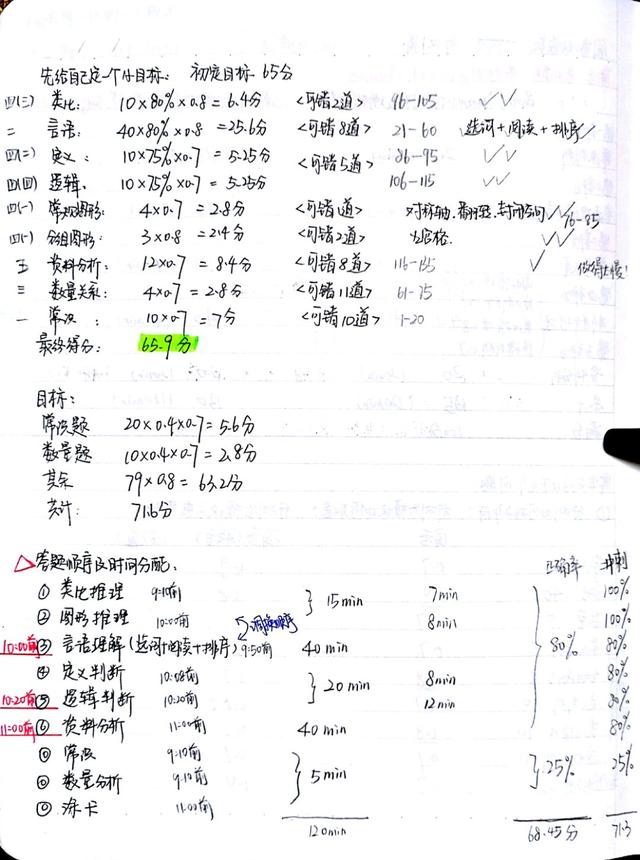 先给自己定一个小目标: 初定目标 65分
四(三) 类比: 10×80%×0.8=6.4分 <可错2道> 96-105 ✓✓
二 言语: 40×80%×0.8=25.6分 <可错8道> 21-60 选词+阅读+排序✓
四(二) 定义: 10×75%×0.7=5.25分 <可错5道> 86-95 ✓✓
四(四) 逻辑: 10×75%×0.7=5.25分 106-115 ✓✓
四(一) 常规图形: 4×0.7=2.8分 <可错1道> 对称轴、封闭空间✓✓ 76-85
四(一) 分组图形: 3×0.8=2.4分 <可错2道> ✓✓
五 资料分析: 12×0.7=8.4分 <可错8道> 116-135 ✓ 做得太慢!
三 数量关系: 4×0.7=2.8分 <可错11道> 61-75
一 常识: 10×0.7=7分 <可错10道> 1-20
最终得分: 65.9分
目标:
常识题 20×0.4×0.7=5.6分
数量题 10×0.4×0.7=2.8分
其余 79×0.8=63.2分
共计: 71.6分
△答题顺序及时间分配: 正确率 冲刺
① 类比推理 9:10前 15min 7min 100%
② 图形推理 10:00前 8min 100%
调换顺序
10:00前 ③ 言语理解(选词+阅读+排序) 9:50前 40min 80% 80%
④ 定义判断 10:08前 20min 8min 80%
10:20前 ⑤ 逻辑判断 10:20前 12min 80%
11:00前 ⑥ 资料分析 11:00前 40min 80%
⓪ 常识 9:10前 5min 25% 25%
⓪ 数量分析 9:10前
⓪ 涂卡 11:00前
120min 68.45分 71.3